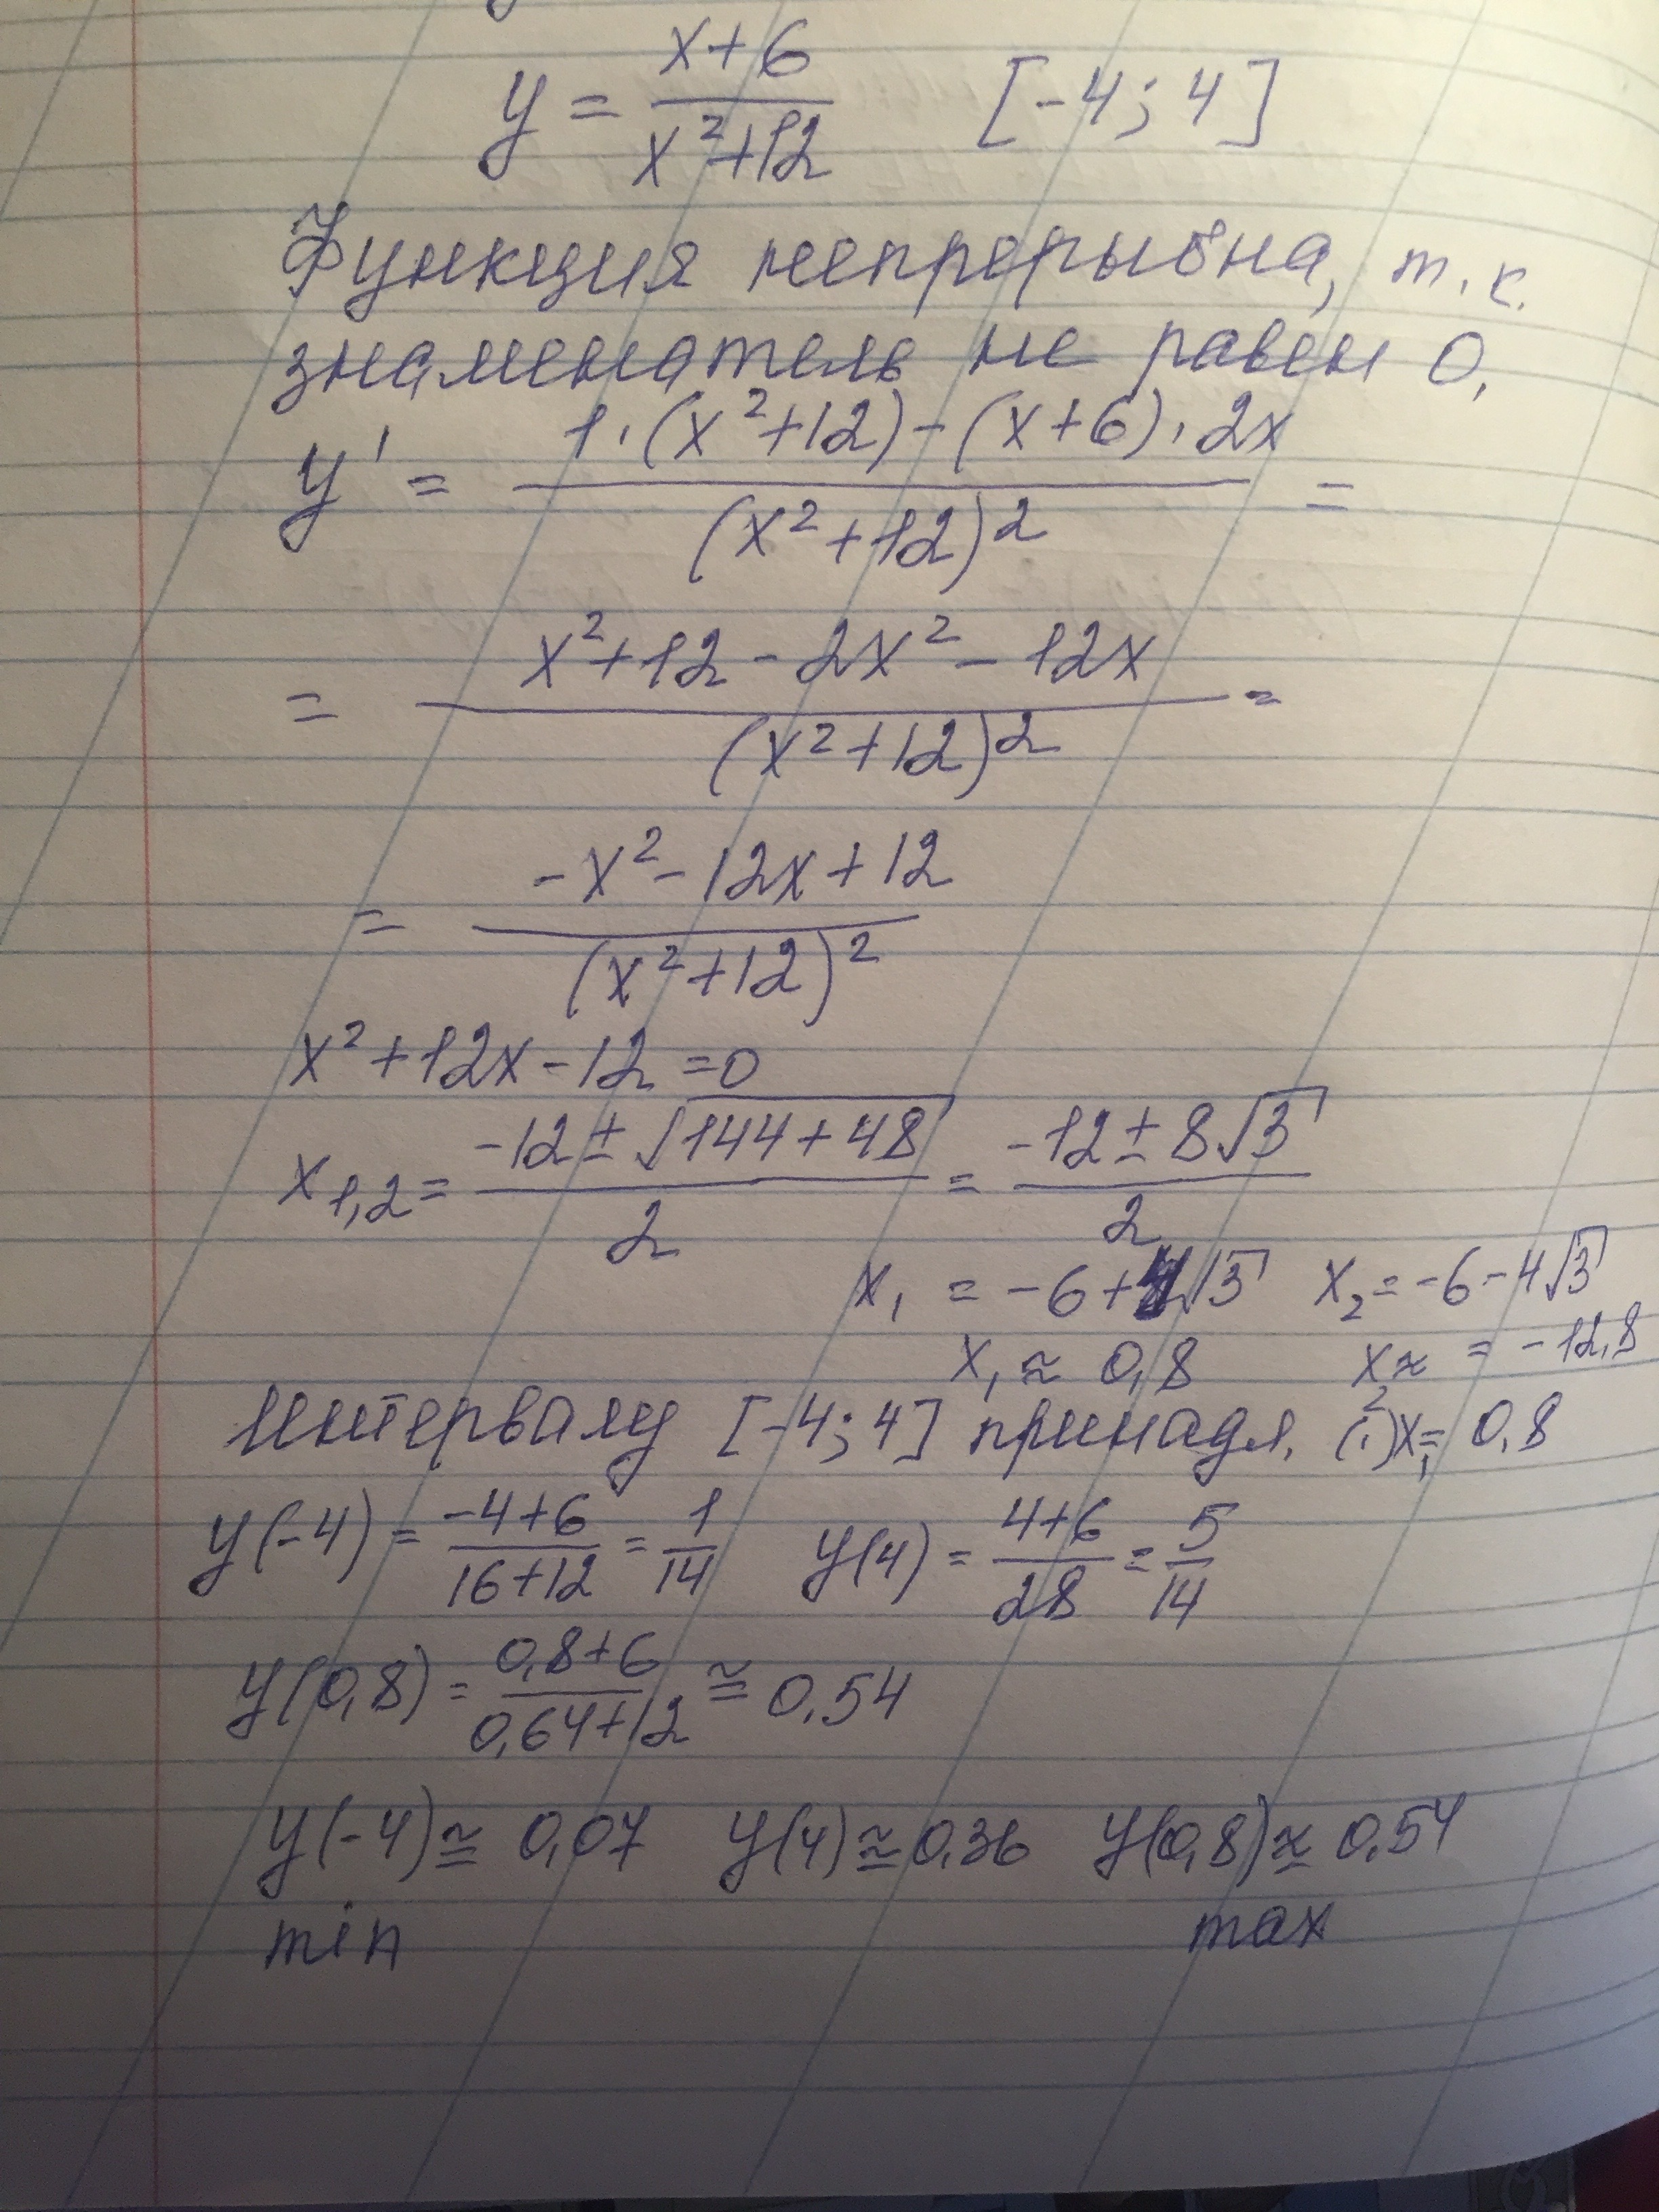 y = (x+6)/(x²+12) [-4; 4]
Функция непрерывна, т.к.
знаменатель не равен 0,
y' = (1·(x²+12)-(x+6)·2x)/((x²+12)²) =
= (x²+12-2x²-12x)/((x²+12)²) =
= (-x²-12x+12)/((x²+12)²)
x²+12x-12=0
x₁,₂ = (-12±√(144+48))/2 = (-12±8√3)/2
x₁ = -6+4√3 x₂ = -6-4√3
x₁ ≈ 0,8 x₂ ≈ = -12,8
Интервалу [-4; 4] принадл. (·) x₁= 0,8
y(-4) = (-4+6)/(16+12) = 1/14 y(4) = (4+6)/28 = 5/14
y(0,8) = (0,8+6)/(0,64+12) ≅ 0,54
y(-4) ≅ 0,07 y(4) ≅ 0,36 y(0,8) ≅ 0,54
min max